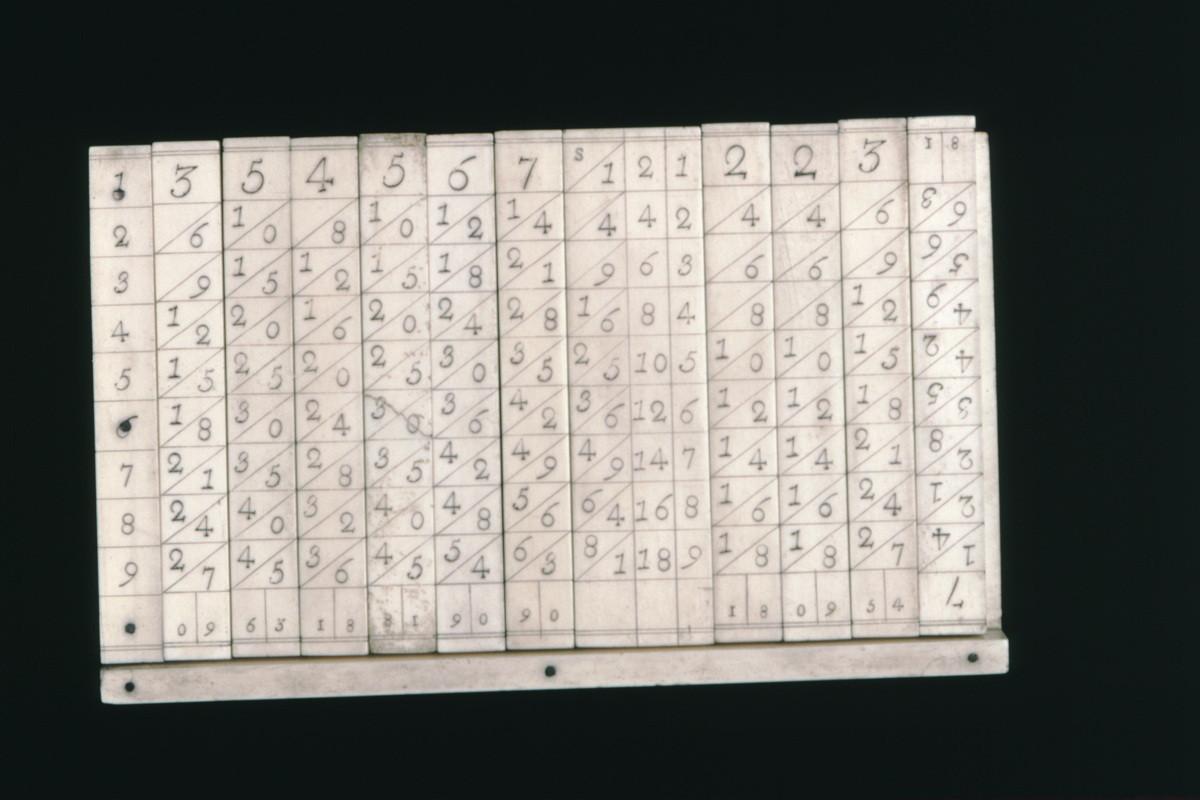 1 3 5 4 5 6 7 s 1 2 1 2 2 3 8 1
2 6 1 0 8 1 0 1 2 1 4 4 4 2 4 4 6 6 3
3 9 1 5 1 2 1 5 1 8 2 1 9 6 3 6 6 9 5 6
4 1 2 2 0 1 6 2 0 2 4 2 8 1 6 8 4 8 8 1 2 4 9
5 1 5 2 5 2 0 2 5 3 0 3 5 2 5 10 5 1 0 1 0 1 5 4 2
6 1 8 3 0 2 4 3 0 3 6 4 2 3 6 12 6 1 2 1 2 1 8 3 5
7 2 1 3 5 2 8 3 5 4 2 4 9 4 9 14 7 1 4 1 4 2 1 2 8
8 2 4 4 0 3 2 4 0 4 8 5 6 6 4 16 8 1 6 1 6 2 4 2 1
9 2 7 4 5 3 6 4 5 5 4 6 3 8 1 18 9 1 8 1 8 2 7 1 4
0 9 6 3 1 8 8 1 9 0 9 0 1 8 0 9 5 4 7